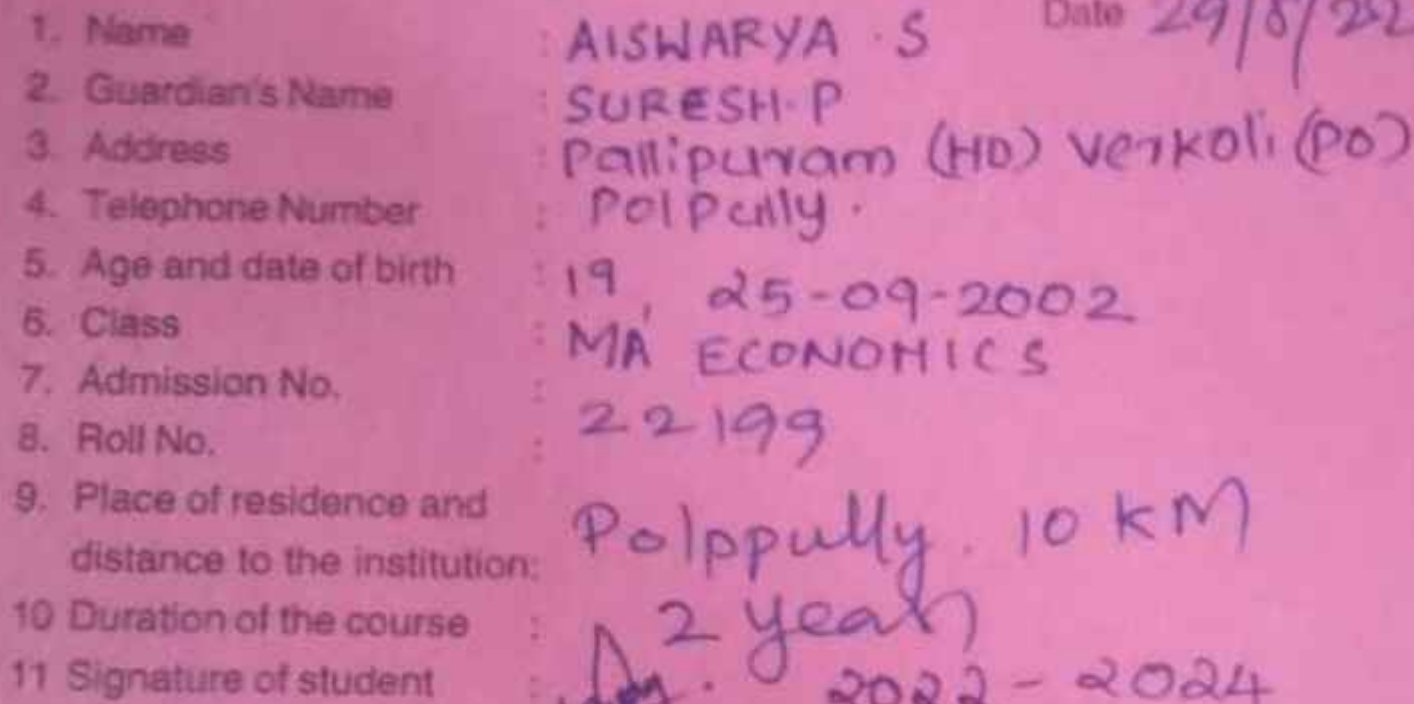 Date 29/8/22
1. Name : AISWARYA . S
2. Guardian's Name : SURESH. P
3. Address : Pallipuram (HO) Verkoli (PO)
4. Telephone Number : Polpully .
5. Age and date of birth : 19, 25-09-2002
6. Class : MA ECONOMICS
7. Admission No. :
8. Roll No. : 22199
9. Place of residence and
distance to the institution: Polppully . 10 KM
10 Duration of the course : 2 year
11 Signature of student : 2022 - 2024